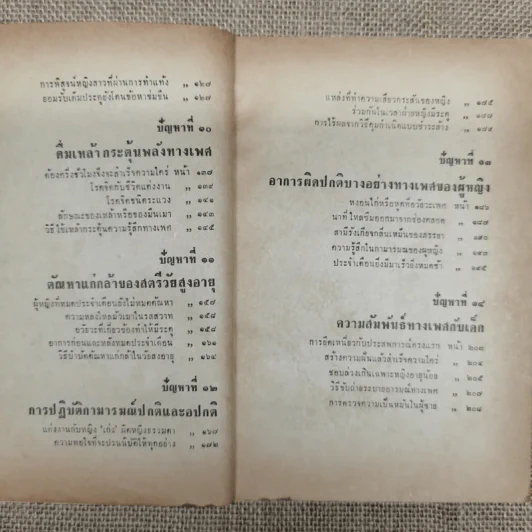 การพิสูจน์หญิงสาวที่ผ่านการทำแท้ง ,, ๑๒๗
ยอมรับเต็มประตูยังโดนข้อหาข่มขืน ,, ๑๒๗
ปัญหาที่ ๑๐
ดื่มเหล้ากระตุ้นพลังทางเพศ
ต้องครึ่งชั่วโมงจึงจะสำเร็จความใคร่ หน้า ๑๓๗
โรคจิตกับชีวิตแต่งงาน ,, ๑๓๙
โรคจิตชนิดระแวง ,, ๑๔๑
ลักษณะของเหล้าหรือของมึนเมา ,, ๑๔๓
วิธีใช้เหล้ากระตุ้นความรู้สึกทางเพศ ,, ๑๔๕
ปัญหาที่ ๑๑
ตัณหาแก่กล้าของสตรีวัยสูงอายุ
ผู้หญิงที่หมดประจำเดือนยังไม่หมดตัณหา ,, ๑๕๗
ความหลงใหลมัวเมาในรสสวาท ,, ๑๕๘
อวัยวะที่เกี่ยวข้องทำให้มีระดู ,, ๑๕๘
อาการก่อนและหลังหมดประจำเดือน ,, ๑๖๑
วิธีบำบัดตัณหาแก่กล้าในวัยสูงอายุ ,, ๑๖๔
ปัญหาที่ ๑๒
การปฏิบัติกามารมณ์ปกติและอปกติ
แต่งงานกับหญิง "เก่ง" ผิดหญิงธรรมดา ,, ๑๖๗
ความพอใจที่จะปรนนิบัติให้ทุกอย่าง ,, ๑๗๒
แหล่งที่ทำความเสียวกระสันของหญิง ,, ๑๘๕
ร่วมกันในเวลาฝ่ายหญิงมีระดู ,, ๑๘๘
การใช้ผลจากวิธีคุมกำเนิดแบบชำระล้าง ,,
ปัญหาที่ ๑๓
อาการผิดปกติบางอย่างทางเพศของผู้หญิง
หน้า
นาทีไหลซึมออกมาจากช่องคลอด ,,
สามีรังเกียจกลิ่นเหม็นของภรรยา ,, ๑๙๐
ความรู้สึกในกามารมณ์ของผู้หญิง ,,
ประจำเดือนยิ่งมีมาเร็วยิ่งหมดช้า ,, ๑๙๕
ปัญหาที่ ๑๔
ความสัมพันธ์ทางเพศกับเด็ก
การยึดเหนี่ยวกับประสพการณ์ครั้งแรก หน้า ๒๐๓
สร้างความฝันแล้วสำเร็จความใคร่ ,,
ชอบล่วงเกินเฉพาะหญิงอายุน้อย ,, ๒๐๕
วิธีขับถ่ายระบายอารมณ์ทางเพศ ,, ๒๐๗
การตรวจความเป็นหมันในผู้ชาย ,, ๒๐๘